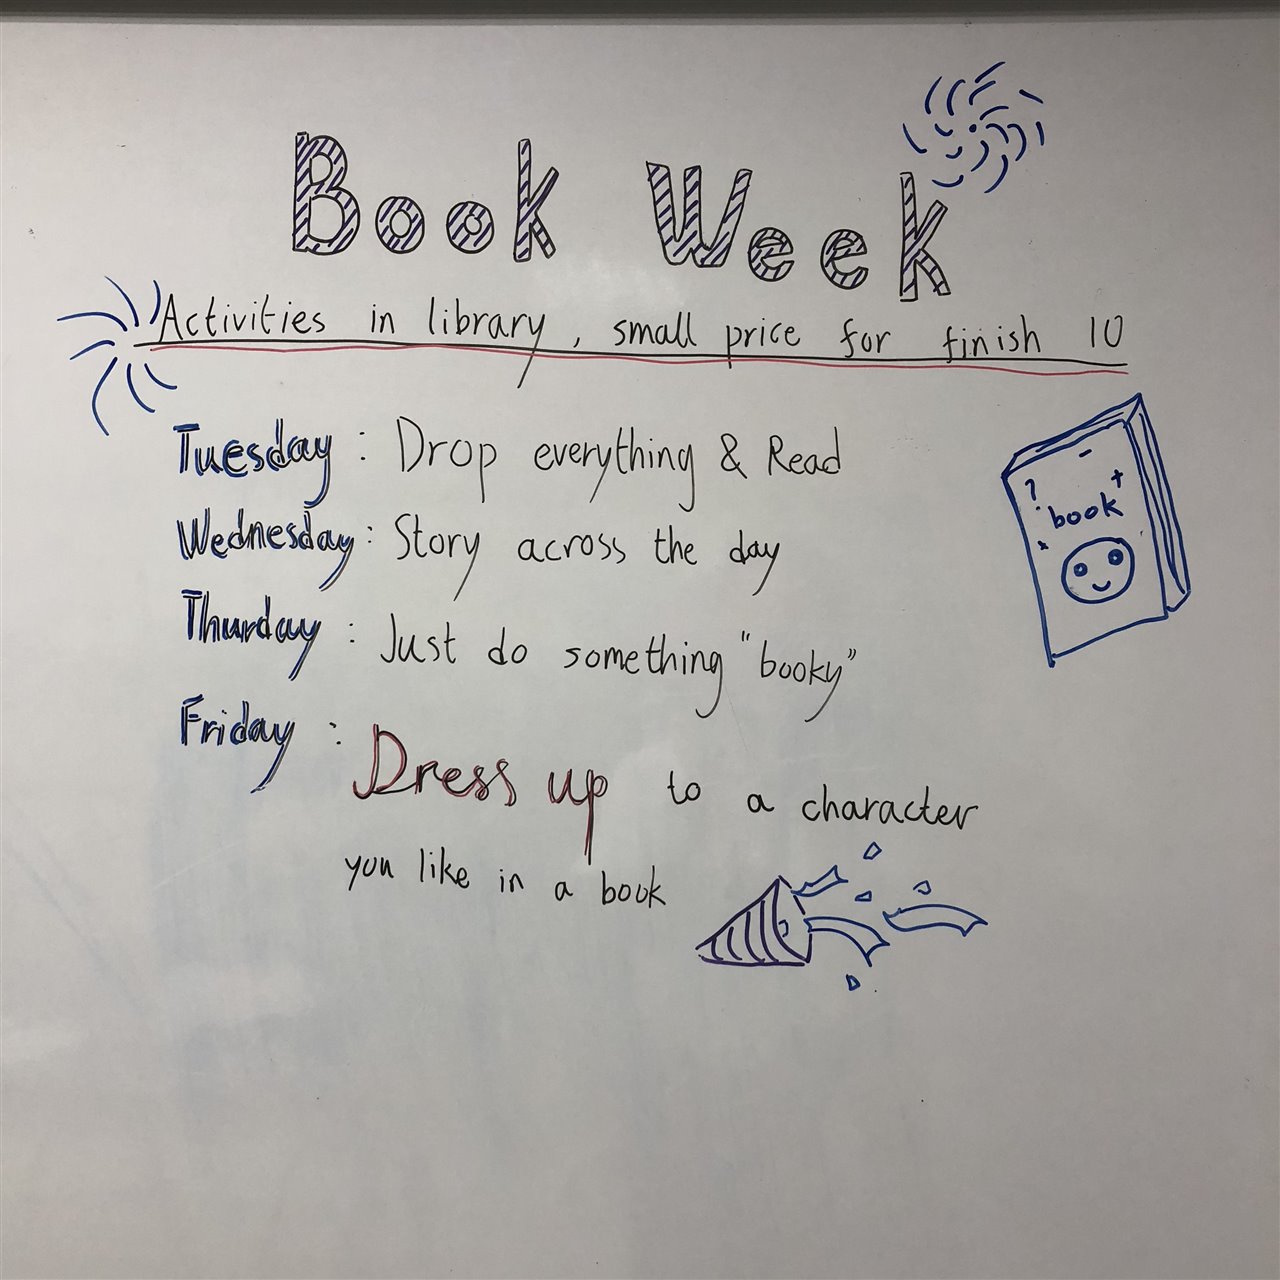 Book Week
Activities in library, small price for finish 10
Tuesday : Drop everything & Read
Wednesday : Story across the day
Thurday : Just do something "booky"
Friday : Dress up to a character
you like in a book
? book